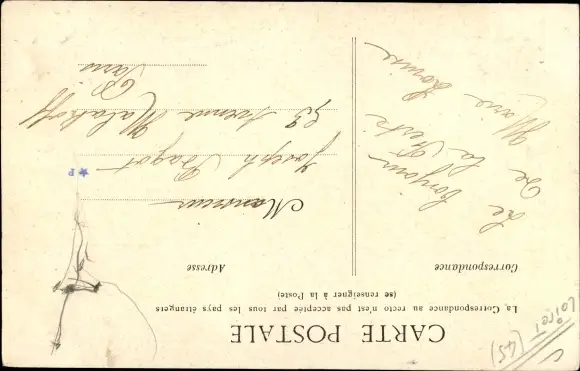 Loiret (45)
CARTE POSTALE
La Correspondance au recto n'est pas acceptée par tous les pays étrangers
(se renseigner à la Poste)
Correspondance
Le bonjour
De la Petite
Marie Louise
Adresse
Monsieur
Joseph Bagot
53 Avenue Malakoff
Paris
P